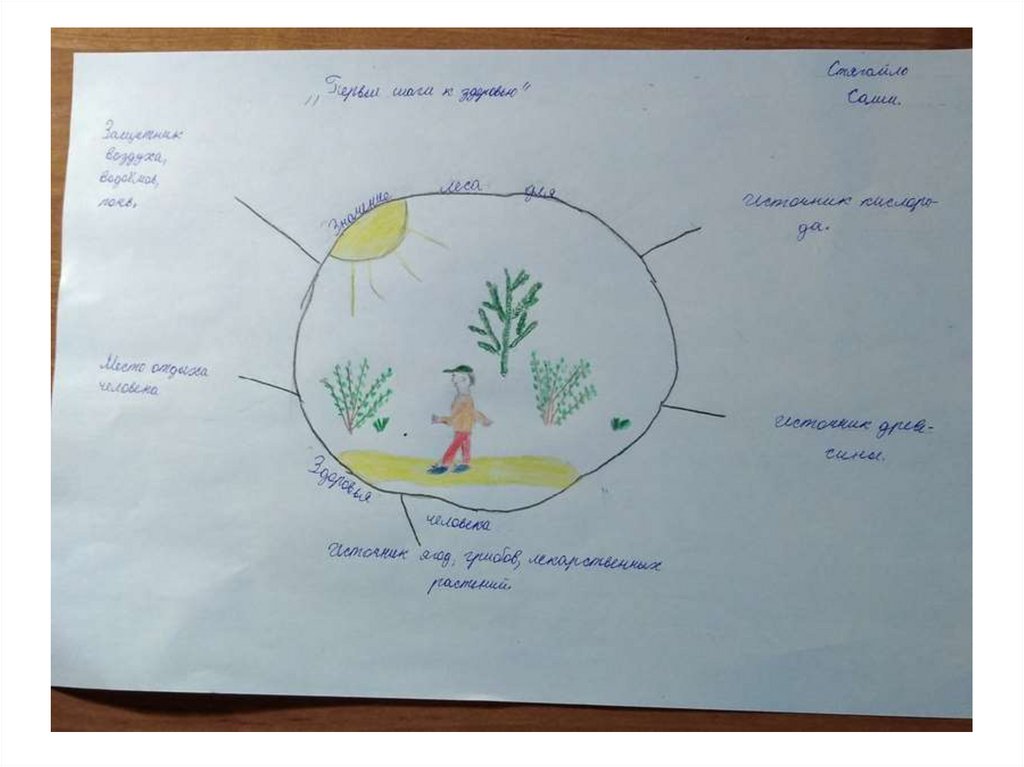 „Первые шаги к здоровью"
Стягайло
Саши.
Защитник
воздуха,
водоёмов,
почв,
Значение леса для
Источник кислоро-
да.
Место отдыха
человека
Источник древе-
сины.
Здоровья
человека
Источник ягод, грибов, лекарственных
растений.